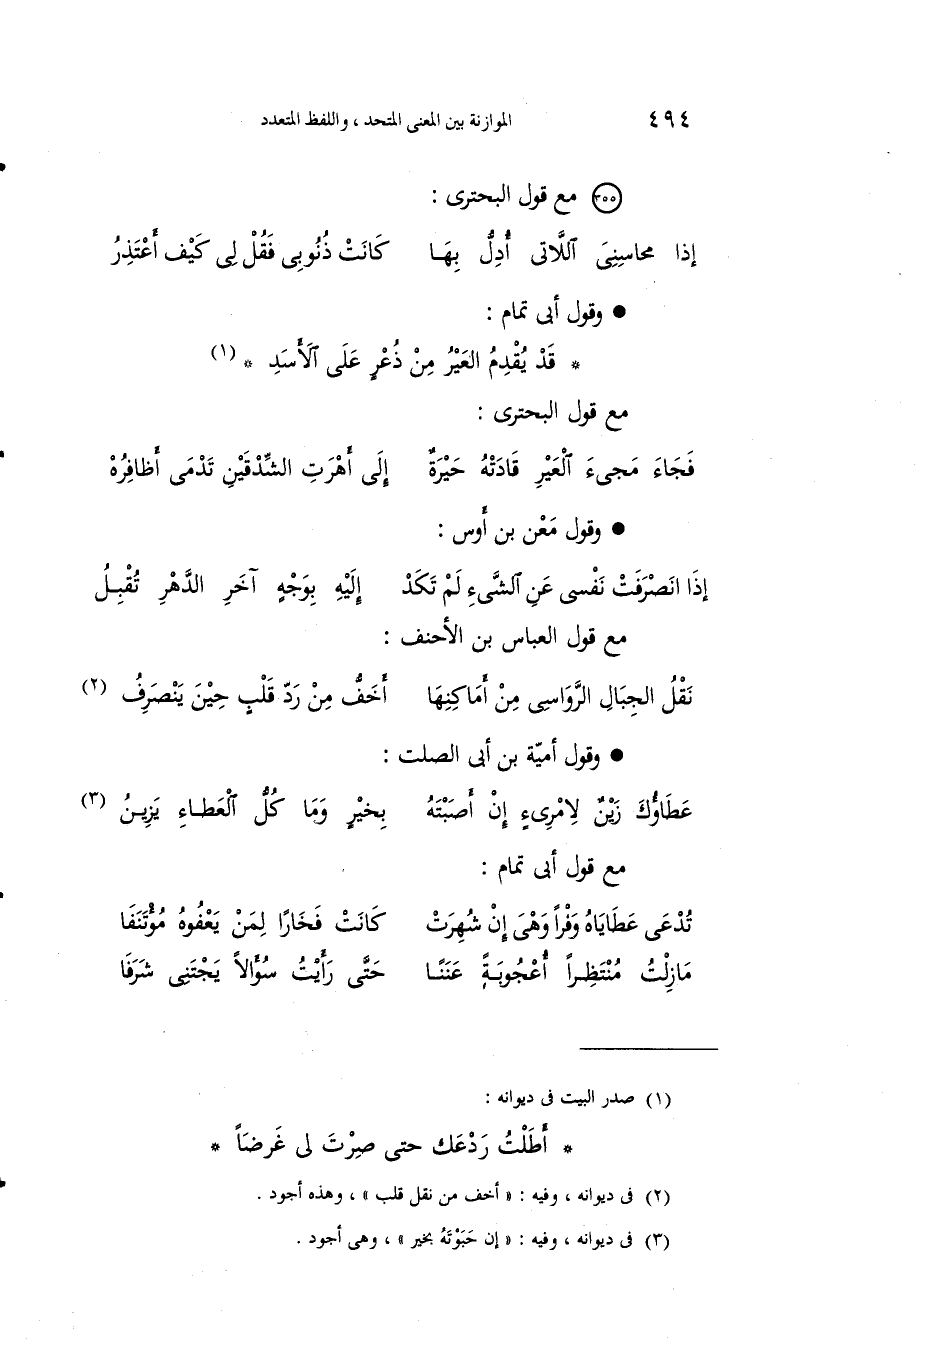 ٤٩٤ الموازنة بين المعنى المتحد ، واللفظ المتعدد
مع قول البحترى :
إذا محاسِنِىَ ٱللَّاتى أُدِلُّ بِهَـا كَانَتْ ذُنُوبِى فَقُلْ لِى كَيْف أَعْتَذِرُ
● وقول أبى تمام :
* قَدْ يُقْدِمُ العَيْرُ مِنْ ذُعْرٍ عَلَى ٱلْأَسَدِ * (١)
مع قول البحترى :
فَجَاءَ مَجىءَ ٱلْعَيْرِ قَادَتْهُ حَيْرَةٌ إِلَى أَهْرَتِ الشِّدْقَيْنِ تَدْمَى أَظافِرُهْ
● وقول مَعْن بن أَوس :
إذَا انَصْرَفَتْ نَفْسى عَنِ ٱلشَّىءِ لَمْ تَكَدْ إِلَيْهِ بِوَجْهٍ آخَرِ الدَّهْرِ تُقْبِـلُ
مع قول العباس بن الأحنف :
نَقْلُ الجِبَالِ الرَّوَاسِى مِنْ أَمَاكِنِهَا أَخَفُّ مِنْ رَدّ قَلْبٍ حِيْنَ يَنْصَرِفُ (٢)
● وقول أميّة بن أبى الصلت :
عَطَاؤُكَ زَيْنٌ لِامْرِىءٍ إِنْ أَصَبْتَهُ بِخيْرٍ وَمَا كُلُّ ٱلْعَطـاءِ يَزِيـنُ (٣)
مع قول أبى تمام :
تُدْعَى عَطَايَاهُ وَفْراً وَهْىَ إِنْ شُهِرَتْ كَانَتْ فَخَارًا لِمَنْ يَعْفُوهُ مُؤْتَنَفَا
مَازِلْتُ مُنْتَظِـراً أُعْجُوبَـةً عَنَنًـا حَتَّى رَأَيْتُ سُؤَالاً يَجْتَنِى شَرَفَا
(١) صدر البيت فى ديوانه :
* أَطَلْتُ رَدْعَك حتى صِرْتَ لى غَرضَاً *
(٢) فى ديوانه ، وفيه : « أخف من نقل قلب » ، وهذه أجود .
(٣) فى ديوانه ، وفيه : « إن حَبَوْتَهُ بخير » ، وهى أجود .